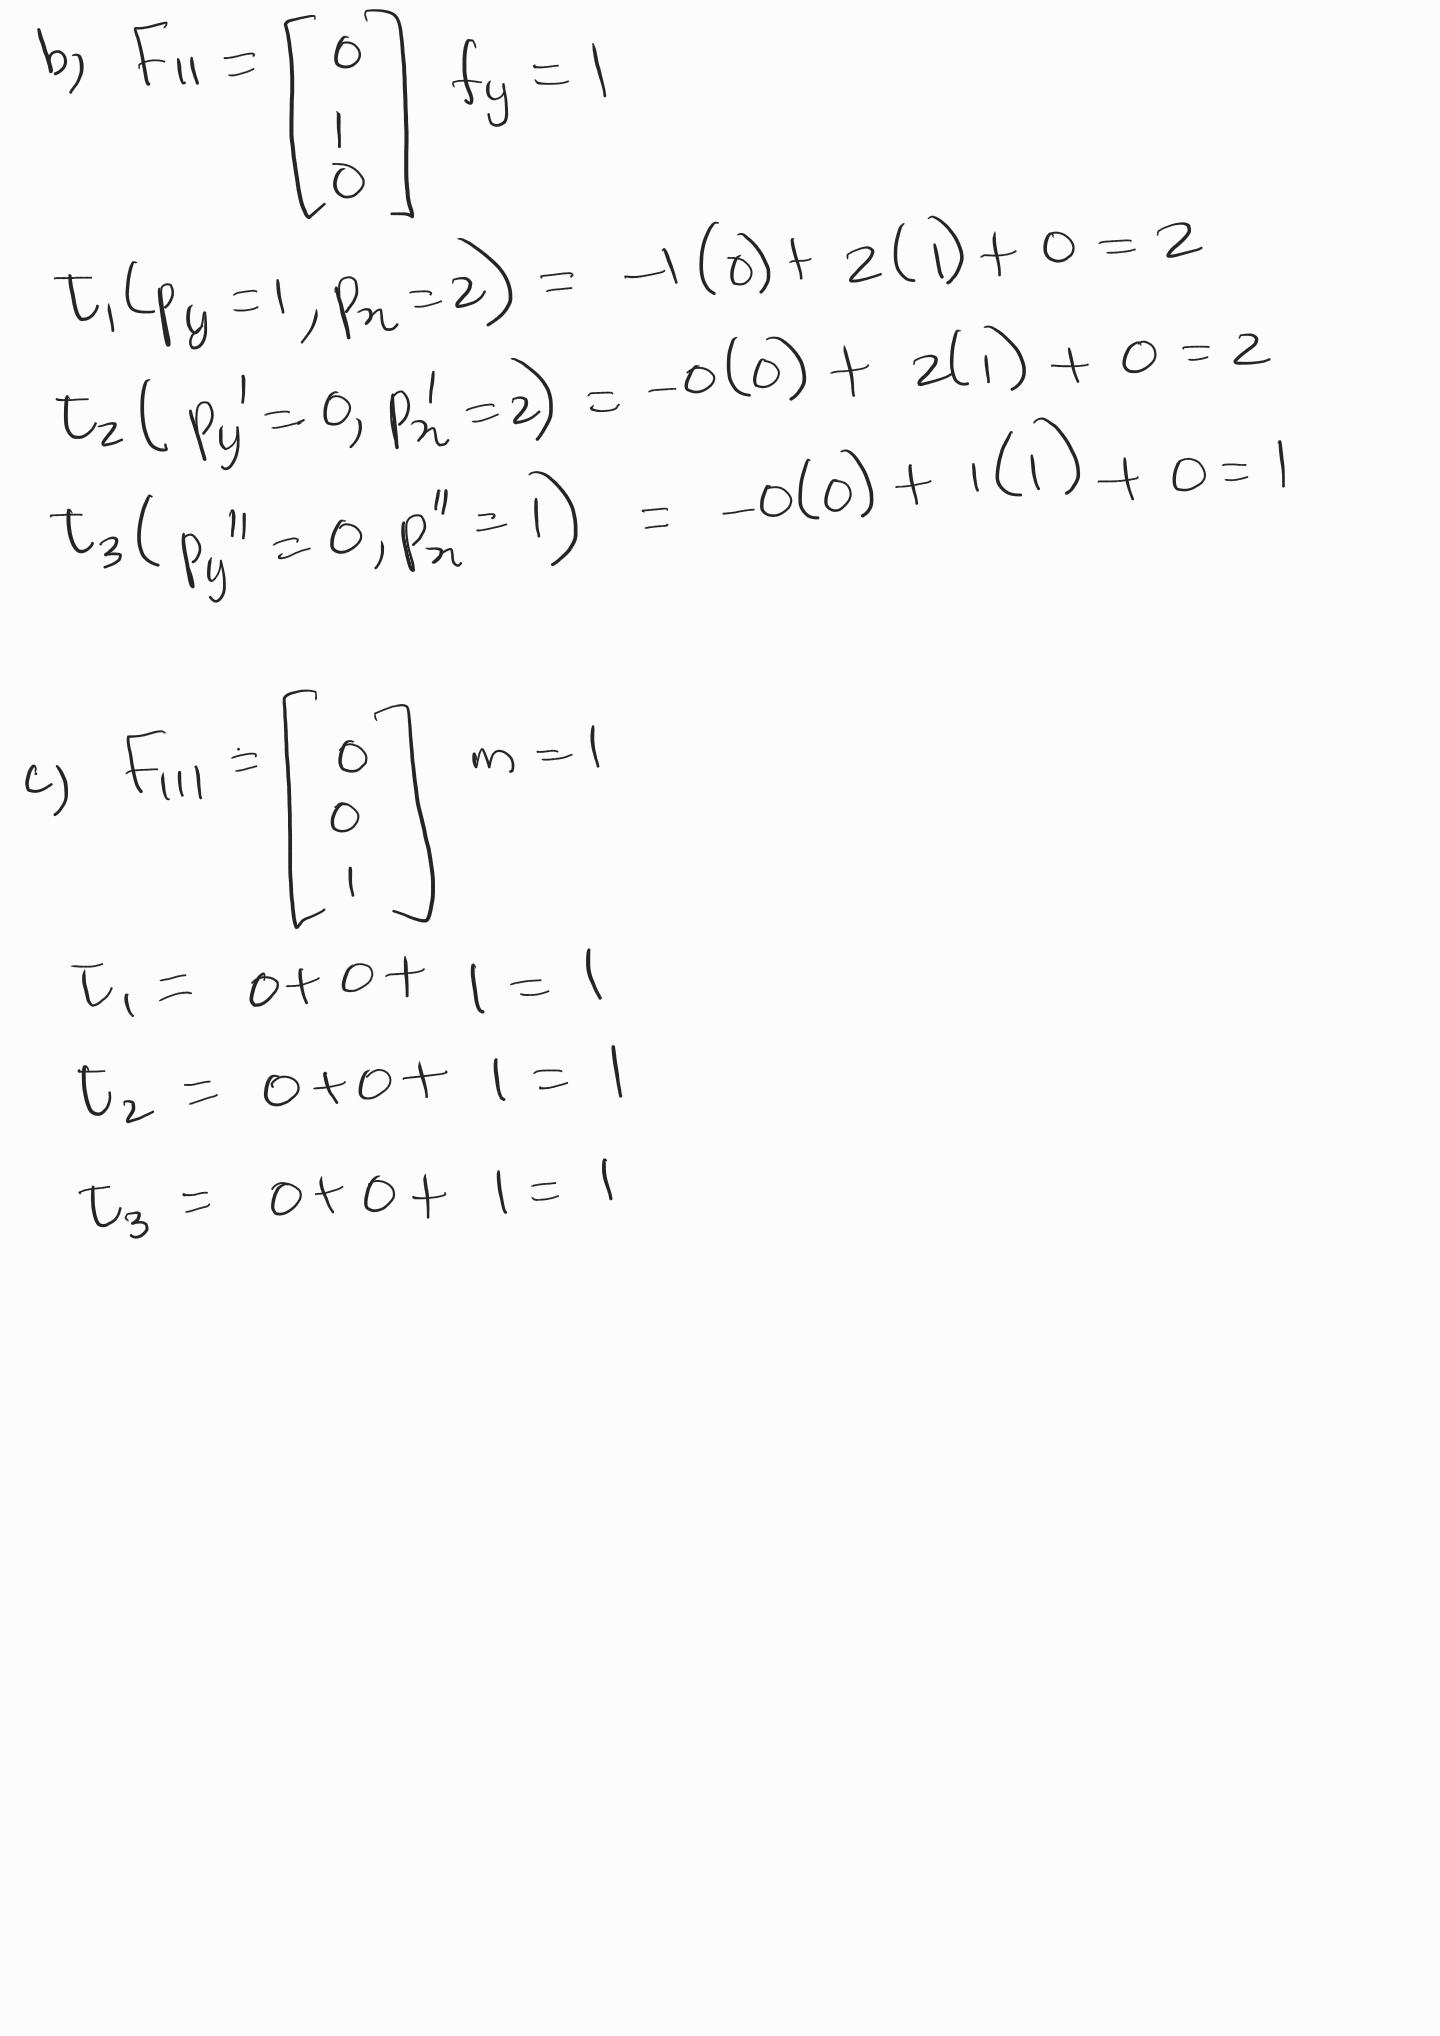 b) F_II = [0 1 0] f_y = 1
τ_1(p_y = 1, p_x = 2) = -1(0) + 2(1) + 0 = 2
τ_2(p_y' = 0, p_x' = 2) = -0(0) + 2(1) + 0 = 2
τ_3(p_y'' = 0, p_x'' = 1) = -0(0) + 1(1) + 0 = 1
c) F_III = [0 0 1] m = 1
τ_1 = 0 + 0 + 1 = 1
τ_2 = 0 + 0 + 1 = 1
τ_3 = 0 + 0 + 1 = 1